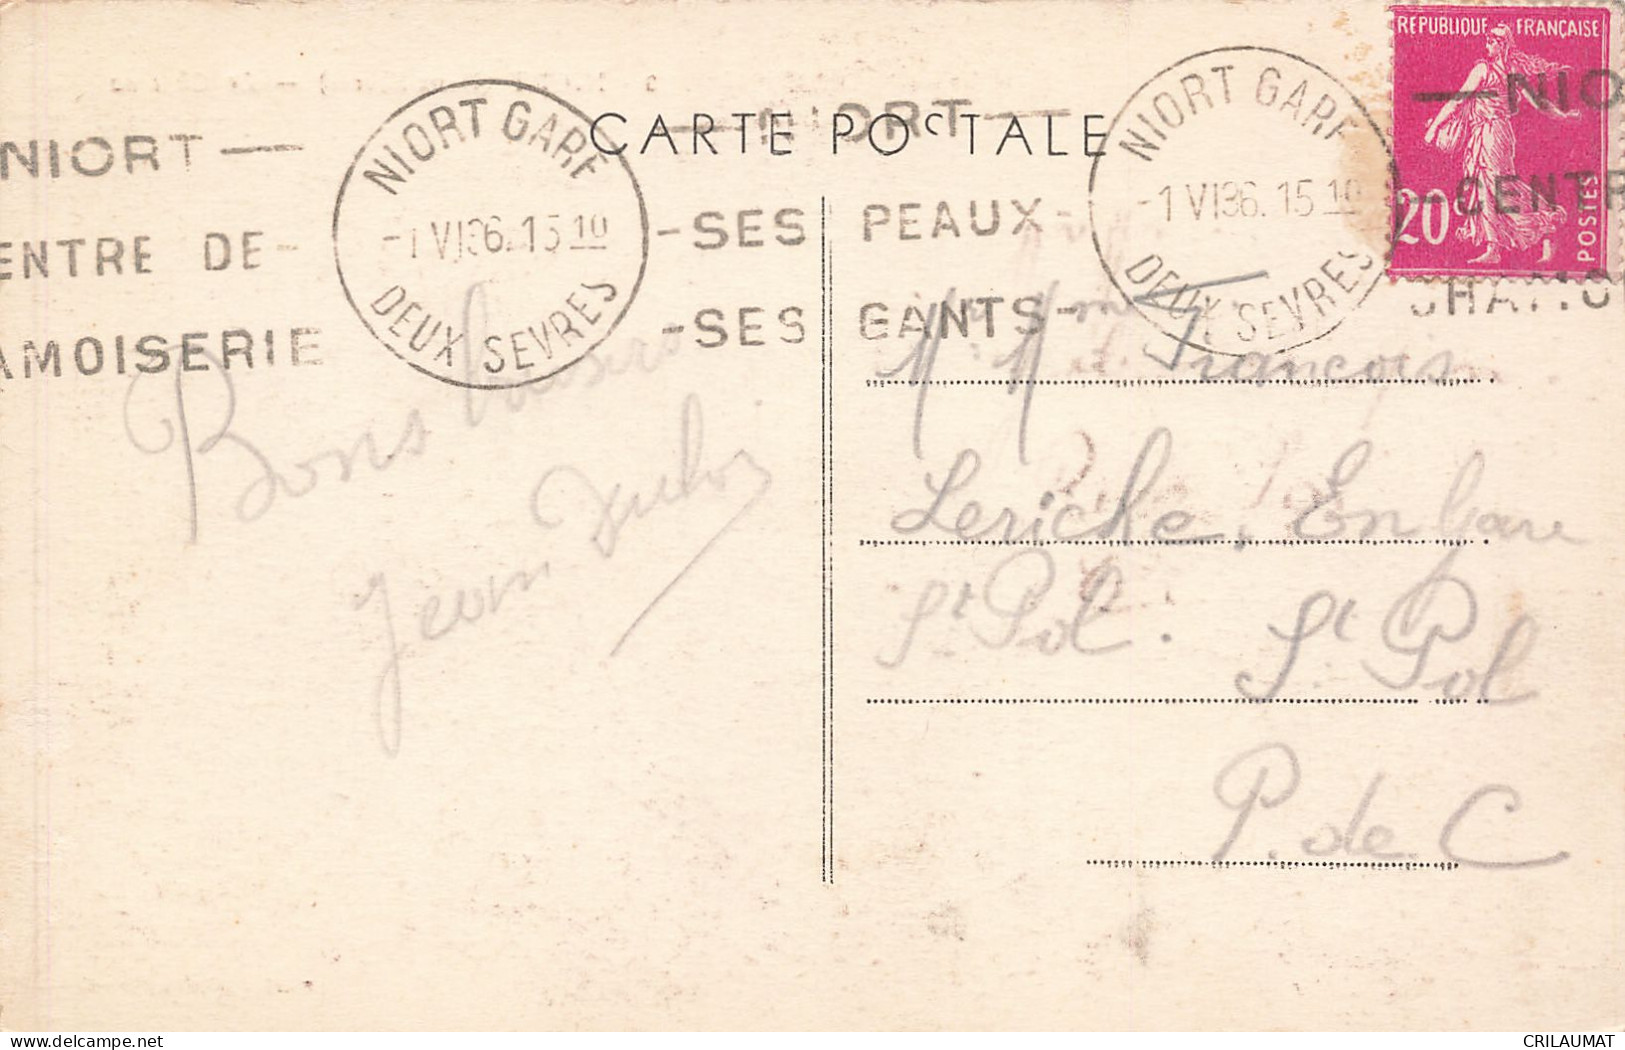 RÉPUBLIQUE FRANÇAISE
20c
POSTES
CARTE POSTALE
NIORT —
ENTRE DE -
AMOISERIE
NIORT GARE
-1 VI36.15 10
DEUX SEVRES
— NIORT —
-SES PEAUX-
-SES GANTS-
NIORT GARE
-1 VI36.15 10
DEUX SEVRES
— NIO
— CENTR
CHAMO
Bons baisers
Jean
Mr Mme François
Leriche, En Gare
St Pol. St Pol
P. de C
CRILAUMAT
delcampe.net